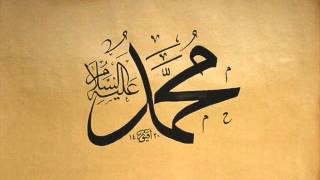 مُحَمَّد
عَلَيْهِ السَّلَام
م
ح
م